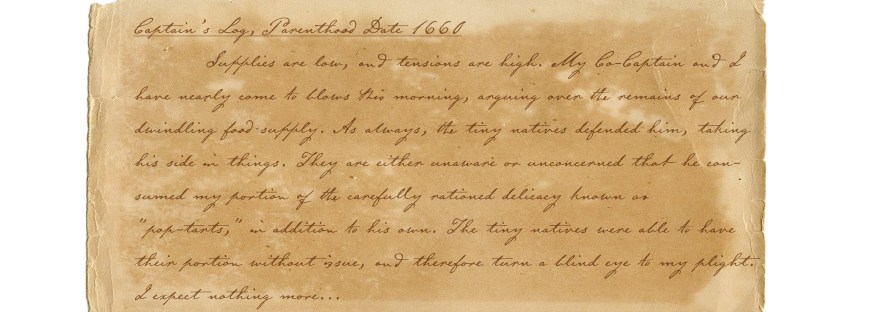 Captain's Log, Parenthood Date 1660
Supplies are low, and tensions are high. My Co-Captain and I
have nearly come to blows this morning, arguing over the remains of our
dwindling food-supply. As always, the tiny natives defended him, taking
his side in things. They are either unaware or unconcerned that he con-
sumed my portion of the carefully rationed delicacy known as
"pop-tarts," in addition to his own. The tiny natives were able to have
their portion without issue, and therefore turn a blind eye to my plight.
I expect nothing more...